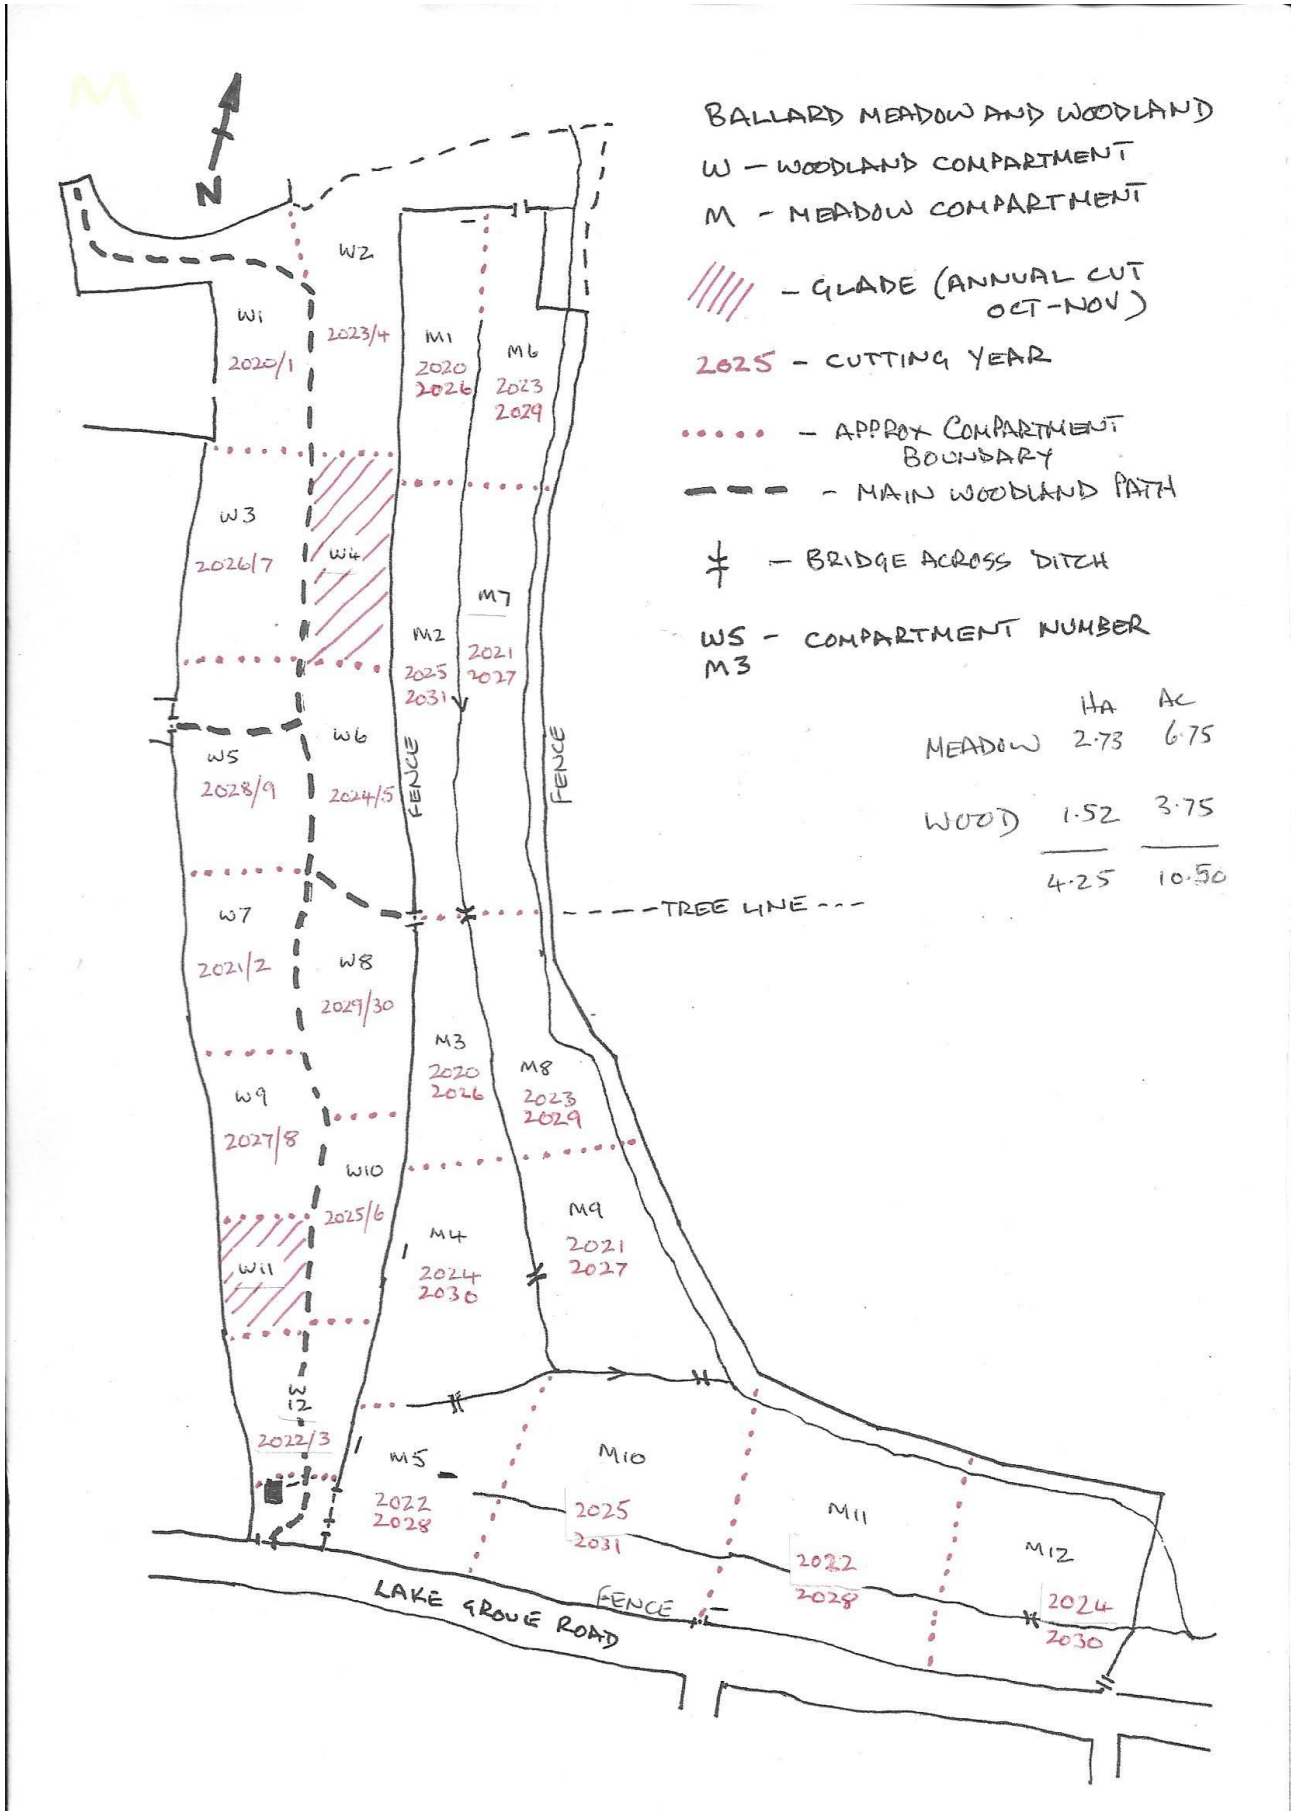 M
N
BALLARD MEADOW AND WOODLAND
W - WOODLAND COMPARTMENT
M - MEADOW COMPARTMENT
- GLADE (ANNUAL CUT
OCT-NOV)
2025 - CUTTING YEAR
- APPROX COMPARTMENT
BOUNDARY
- MAIN WOODLAND PATH
- BRIDGE ACROSS DITCH
W5 - COMPARTMENT NUMBER
M3
HA AC
MEADOW 2.73 6.75
WOOD 1.52 3.75
4.25 10.50
W2
2023/4
W1
2020/1
M1
2020
2026
M6
2023
2029
W3
2026/7
W4
M7
2021
2027
M2
2025
2031
W5
2028/9
W6
2024/5
FENCE
FENCE
W7
2021/2
W8
2029/30
----TREE LINE---
M3
2020
2026
M8
2023
2029
W9
2027/8
W10
2025/6
M4
2024
2030
M9
2021
2027
W11
W
12
2022/3
M5
2022
2028
M10
2025
2031
M11
2022
2028
M12
2024
2030
FENCE
LAKE GROVE ROAD